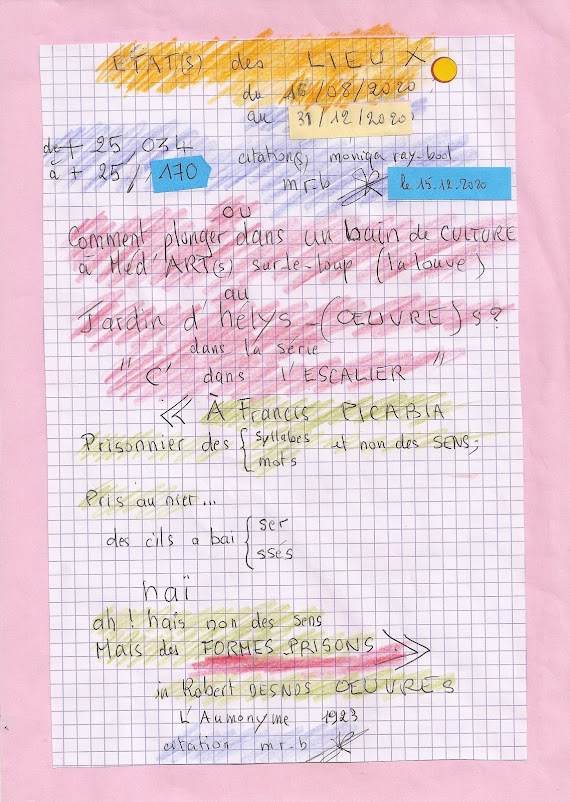 ÉTAT(S) des LIEUX
du 16/08/2020
au 31/12/2020
de + 25 034
à + 25 // 170
citation(s) moniqa ray-bool
mr-b le 15.12.2020
ou
Comment plonger dans un bain de CULTURE
à Méd'ART(s) sur-le-loup (la louve)
au
Jardin d'hélys-(ŒUVRE)s?
dans la série
"C' dans l'ESCALIER"
<< À Francis PICABIA
Prisonnier des { syllabes et non des SENS;
mots
Pris au nier...
des cils a bai { ser
ssés
haï
ah! haïs non des sens
Mais des FORMES PRISONS. >>
in Robert DESNOS OEUVRES
L'Aumonyme 1923
citation mr-b